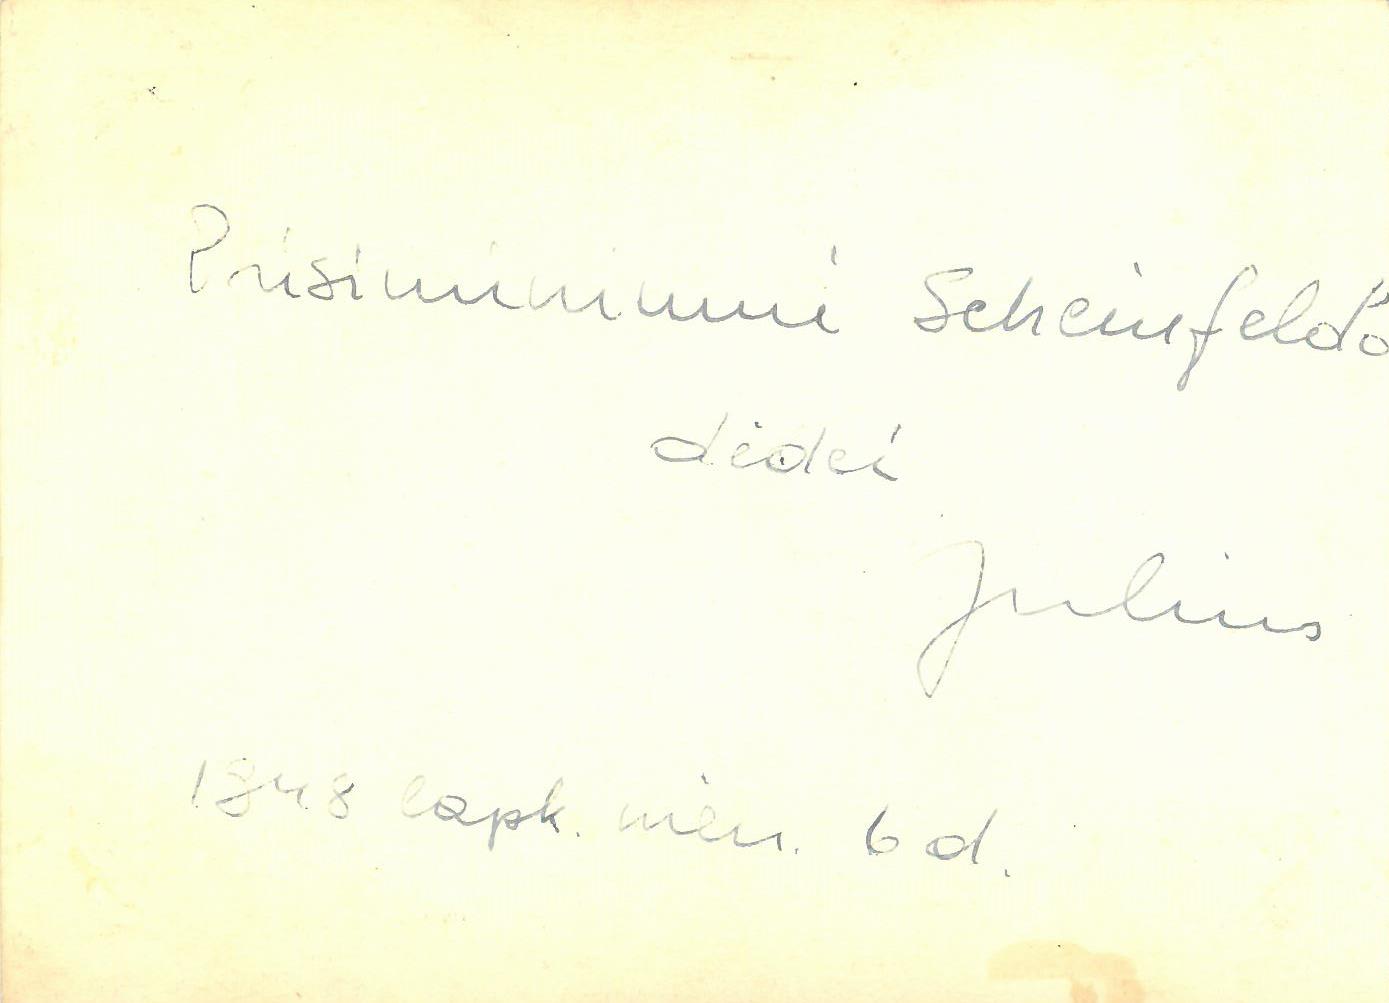 Prisiminimui Scheinfeldo
dėdei
Julius
1948 lapk. mėn. 6 d.